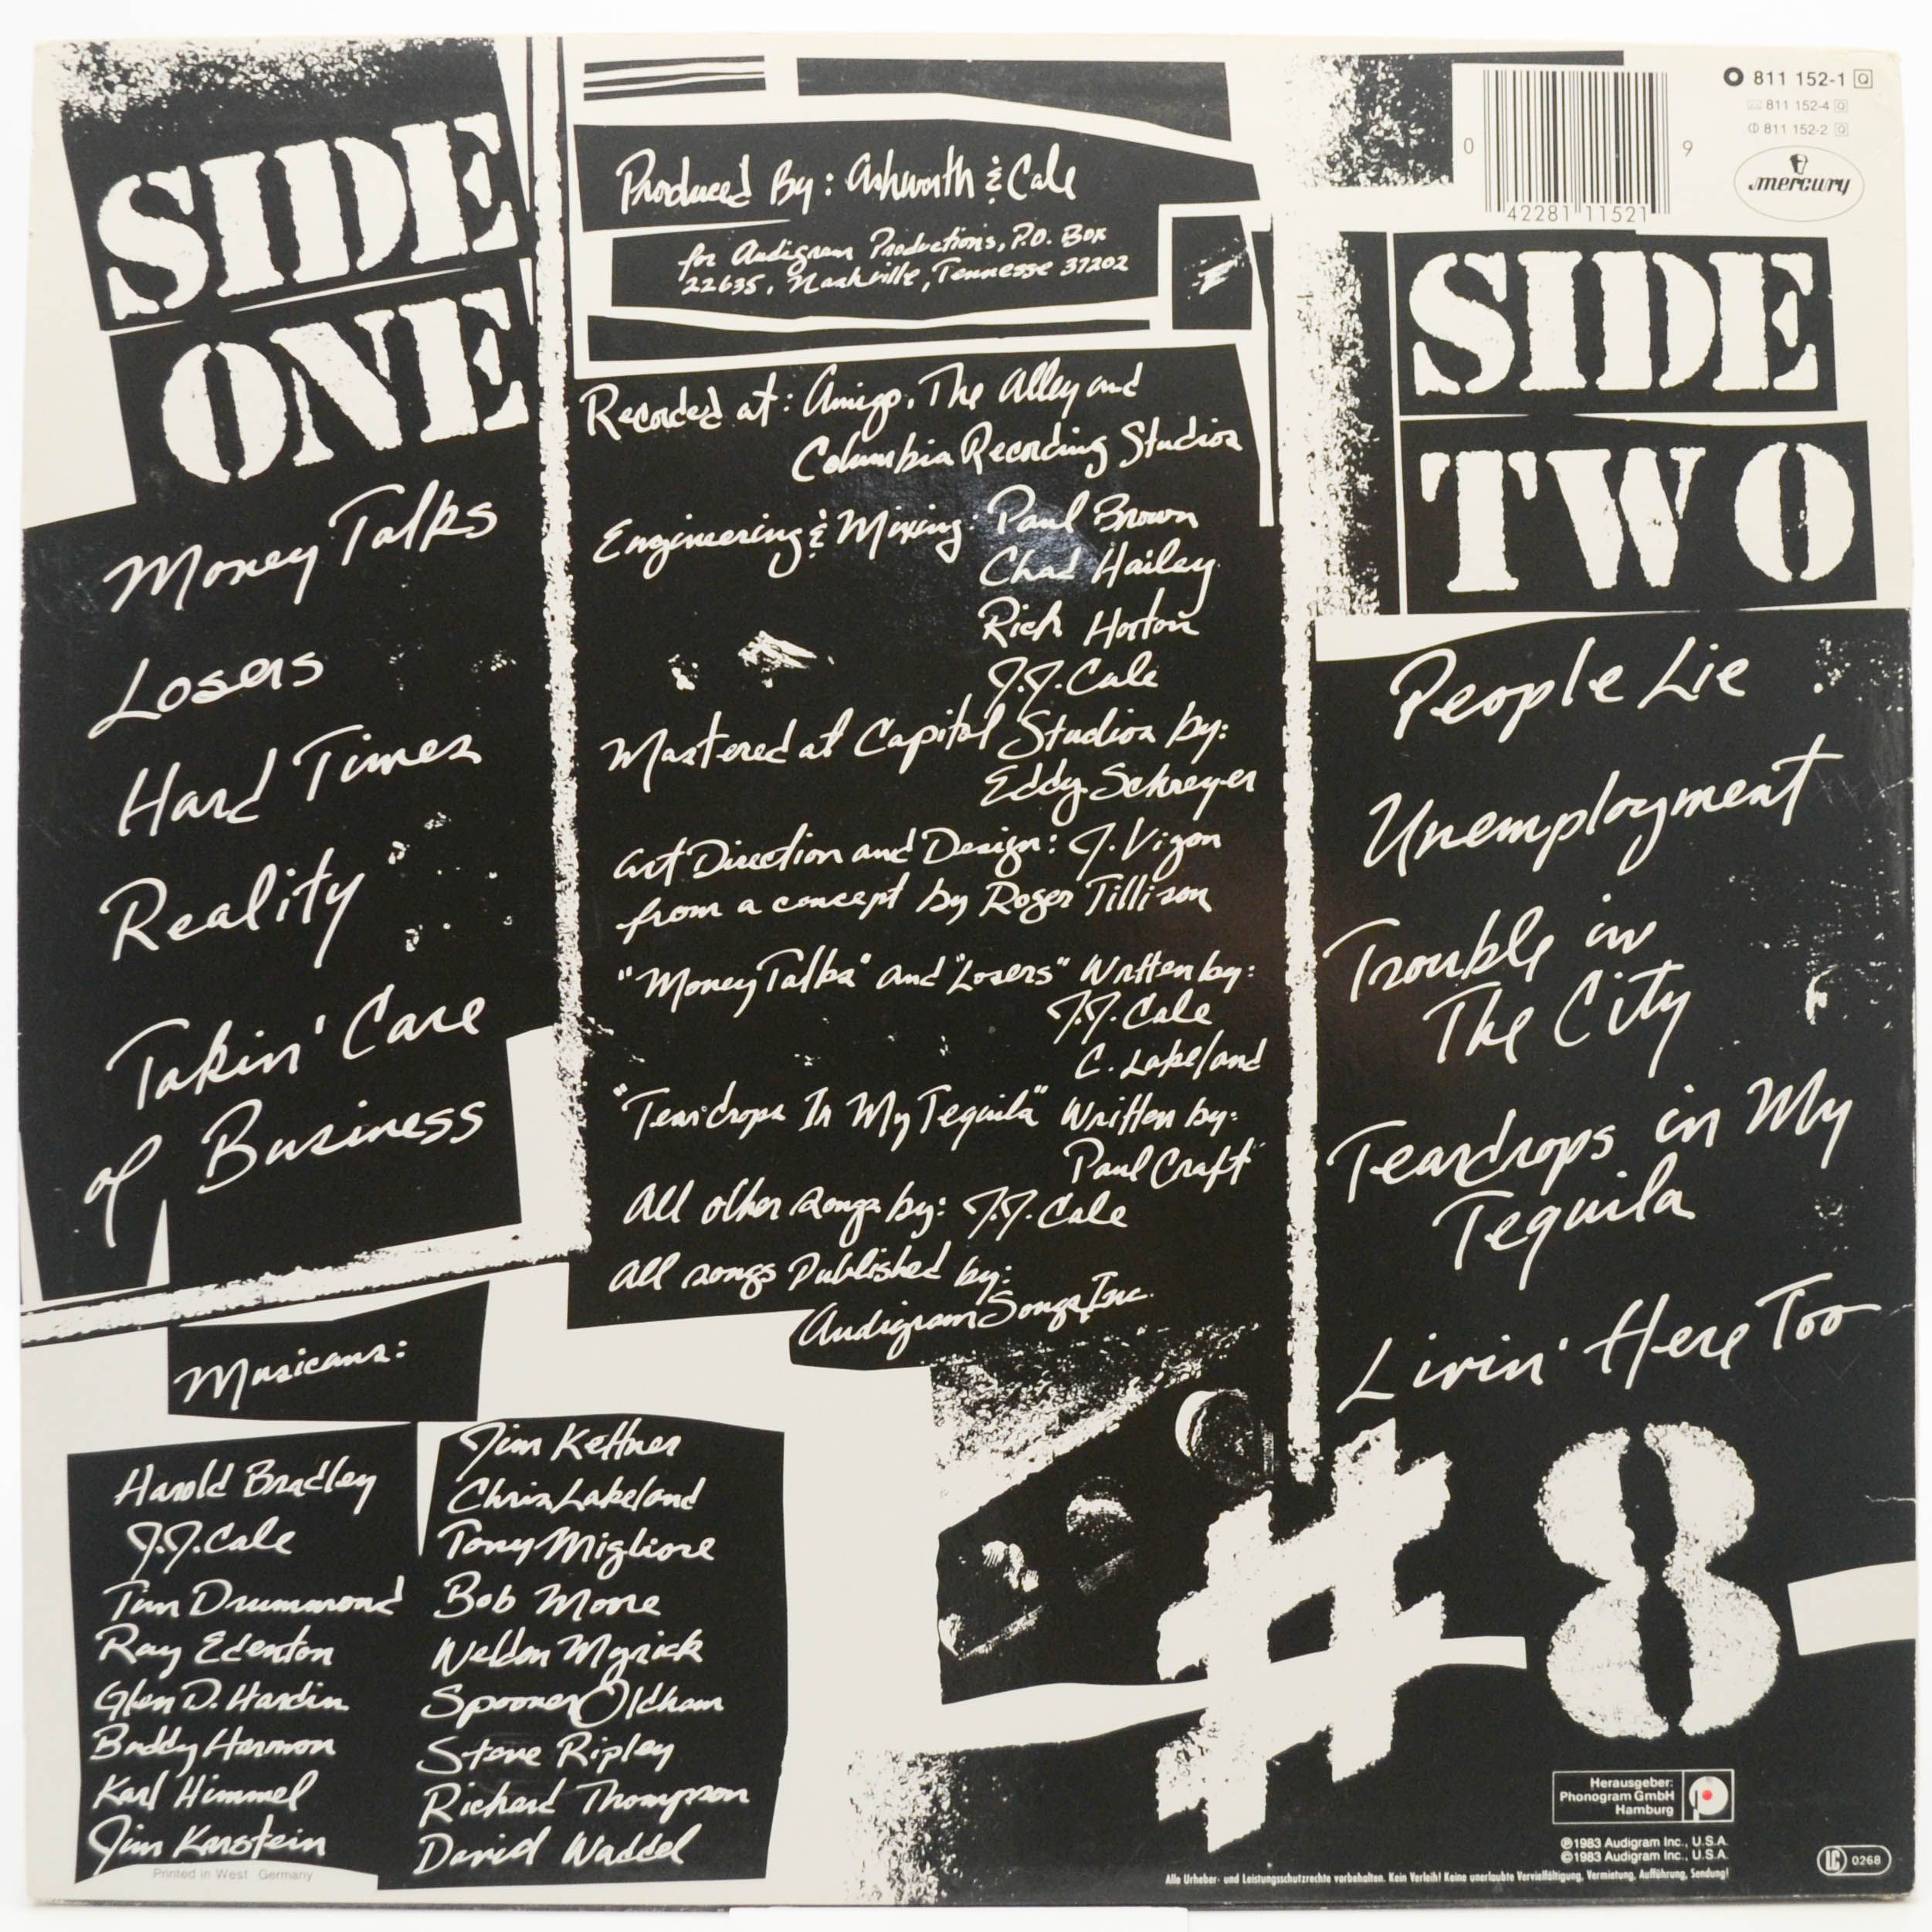 SIDE
ONE
Money Talks
Losers
Hard Times
Reality
Takin' Care
of Business
Produced By: Ashworth & Cale
for Audigram Productions, P.O. Box
22635, Nashville, Tennesse 37202
Recorded at: Amigo, The Alley and
Columbia Recording Studios
Engineering & Mixing: Paul Brown
Chad Hailey
Rich Horton
J.J. Cale
Mastered at Capitol Studios by:
Eddy Schreyer
Art Direction and Design: J. Vigon
from a concept by Roger Tillison
"Money Talks" and "Losers" Written by:
J.J. Cale
C. Lakeland
"Teardrops In My Tequila" Written by:
Paul Craft
All other songs by: J.J. Cale
All songs Published by:
Audigram Songs, Inc.
0 42281 11521 9
811 152-1 Q
811 152-4 Q
811 152-2 Q
mercury
SIDE
TWO
People Lie
Unemployment
Trouble in
The City
Teardrops in My
Tequila
Livin' Here Too
Musicans:
Harold Bradley
J.J. Cale
Tim Drummond
Ray Edenton
Glen D. Hardin
Buddy Harmon
Karl Himmel
Jim Karstein
Jim Keltner
Chris Lakeland
Tony Migliore
Bob Moore
Weldon Myrick
Spooner Oldham
Steve Ripley
Richard Thompson
David Waddel
Printed in West Germany
#8
Herausgeber:
Phonogram GmbH
Hamburg
℗1983 Audigram Inc., U.S.A.
©1983 Audigram Inc., U.S.A.
LC 0268
Alle Urheber- und Leistungsschutzrechte vorbehalten. Kein Verleih! Keine unerlaubte Vervielfältigung, Vermietung, Aufführung, Sendung!